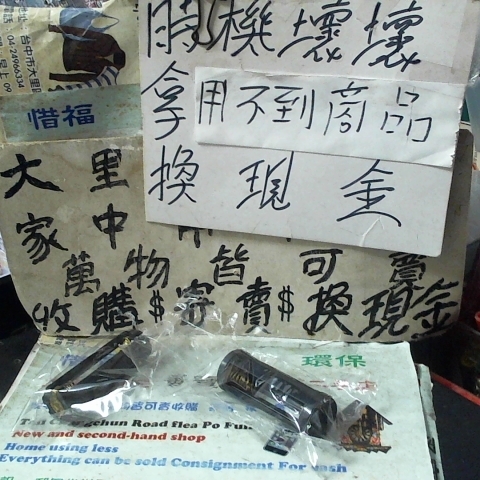 時機壞壞
拿用不到商品
換現金
惜福
台中市大里
04 2496334
大里
家中
萬物皆可賣
收購$寄賣$換現金
環保
皆可寄收購
Road flea Po Fu
New and second-hand shop
Home using less
Everything can be sold Consignment For cash